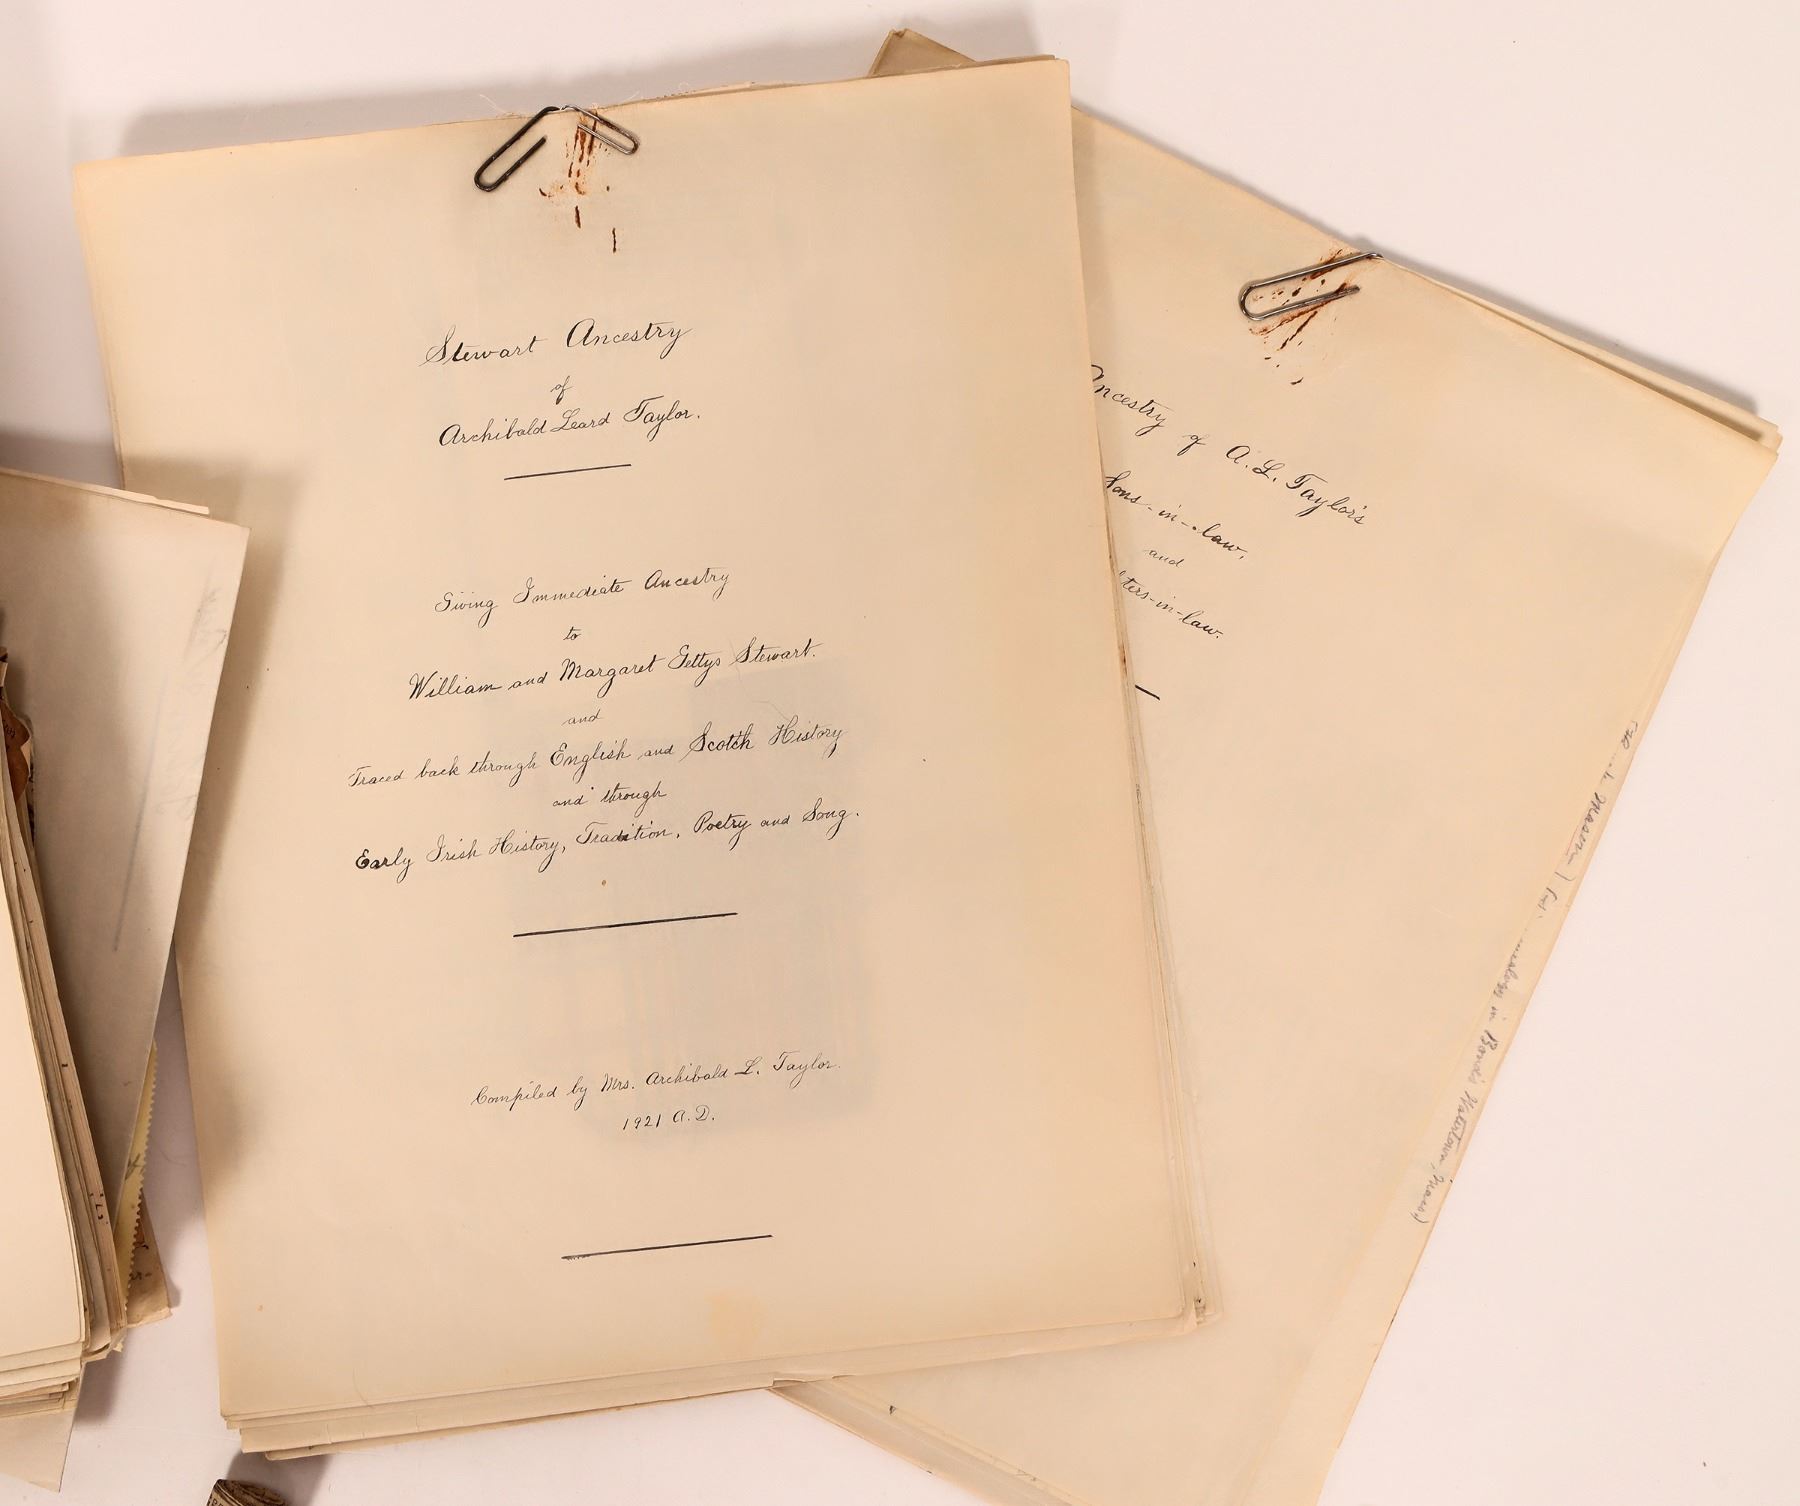 Stewart Ancestry
of
Archibald Leard Taylor.
Giving Immediate Ancestry
to
William and Margaret Gettys Stewart.
and
Traced back through English and Scotch History
and through
Early Irish History, Tradition, Poetry and Song.
Compiled by Mrs. Archibald L. Taylor.
1921 A.D.
Ancestry of A. L. Taylor's
Sons-in-law,
and
ters-in-law.
Mason) in Bond's Watertown, Mass)